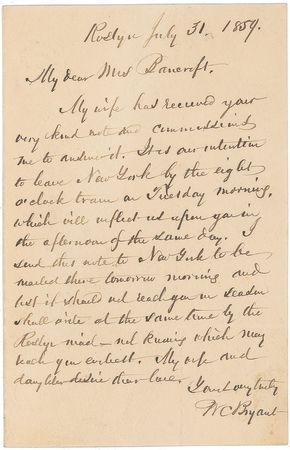 Roslyn July 31. 1859.
My dear Mrs Bancroft.
My wife has received your
very kind note and commissions
me to answer it. It is our intention
to leave New York by the eight
o'clock train on Tuesday morning,
which will inflict us upon you in
the afternoon of the same day. I
send this note to New York to be
mailed there tomorrow morning and
lest it shall not reach you in season
shall write at the same time by the
Roslyn mail - not knowing which may
reach you earliest. My wife and
daughter desire their love.
Yours very truly
W C Bryant